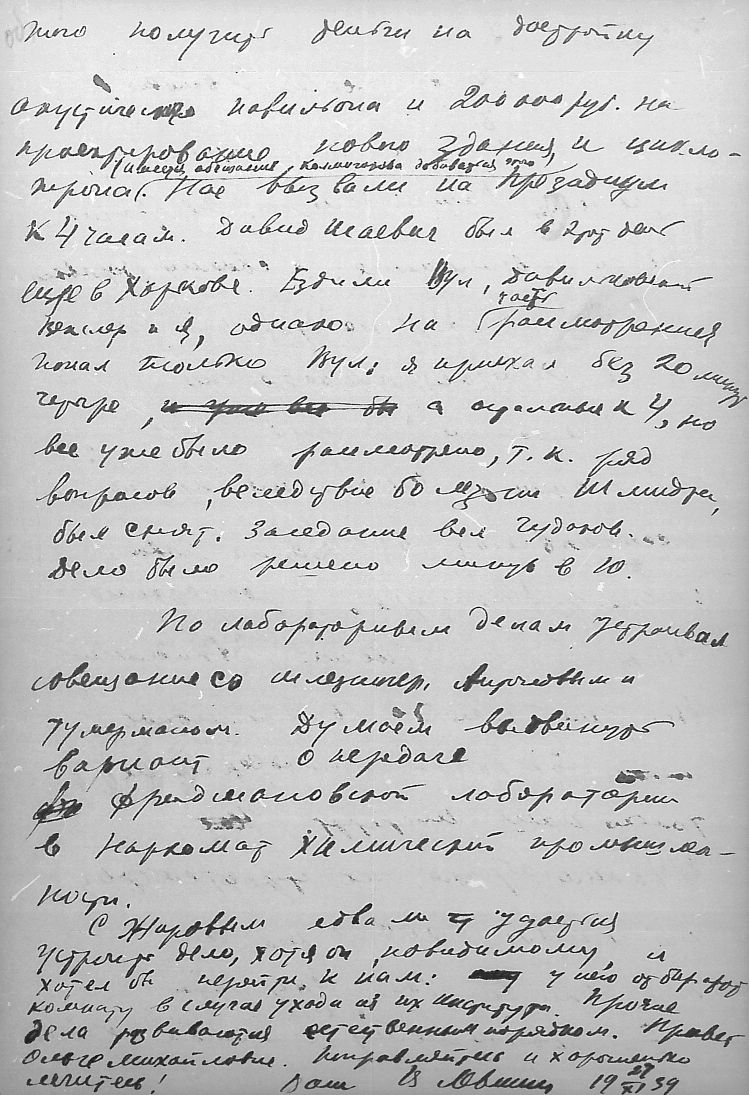 того получить деньги на достройку
акустического павильона и 200000 руб. на
проектирование нового здания, и цикло-
(имеем обещание, Комиссарова добиваться это)
трона. Нас вызвали на Президиум
к 4 часам. Давид Исаевич был в этот день
еще в Харькове. Ездили Вул, Давиловский
Векслер и я, однако на часть рассмотрения
попал только Вул: я приехал без 20 минут
четыре, и уже все бы а остальные к 4, но
все уже было рассмотрено, т. к. ряд
вопросов, вследствие болезни Шмидта,
был снят. Заседание вел Чудаков.
Дело было решено минут в 10.
По лабораторным делам устраивал
совещание со Шлезингер, Антоновым и
Тумерманом. Думаем выдвинуть
вариант о передаче
Фридмановской лаборатории
в Наркомат химической промышлен-
ности.
С Жаровым едва ли удастся
устроить дело, хотя он, повидимому, и
хотел бы перейти к нам: у него отбирают
комнату в случае ухода из их института. Прочие
дела развиваются естественным порядком. Привет
Ольге Михайловне. Поправляйтесь и хорошенько
лечитесь! Ваш В Лёвшин 19 27/XI 39